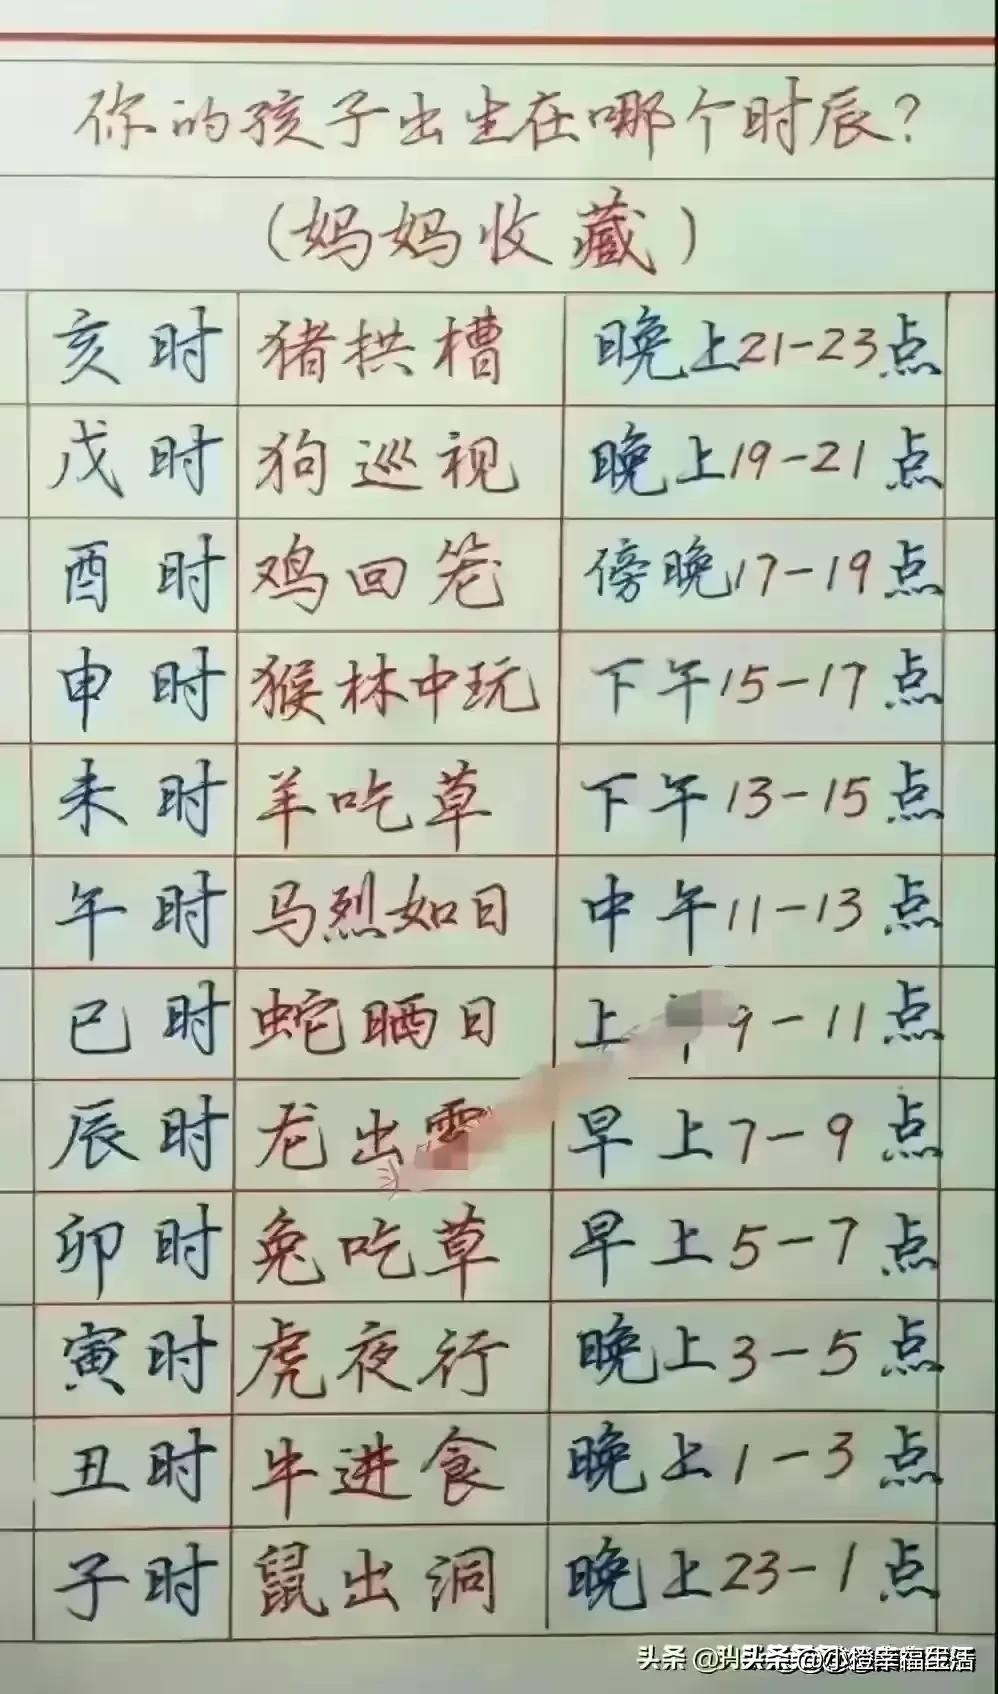 你的孩子出生在哪个时辰?
(妈妈收藏)
亥时 猪拱槽 晚上21-23点
戌时 狗巡视 晚上19-21点
酉时 鸡回笼 傍晚17-19点
申时 猴林中玩 下午15-17点
未时 羊吃草 下午13-15点
午时 马烈如日 中午11-13点
巳时 蛇晒日 上午9-11点
辰时 龙出雲 早上7-9点
卯时 兔吃草 早上5-7点
寅时 虎夜行 晚上3-5点
丑时 牛进食 晚上1-3点
子时 鼠出洞 晚上23-1点
头条